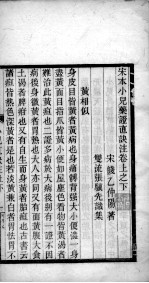 宋本小兒藥證直訣注卷上之下
宋錢乙仲陽著
雙流張驥先識集
黃相似
身皮目皆黃者黃病也身痛膊背强大小便澀一身
盡黃面目指爪皆黃小便如屋塵色著物皆黃渴者
難治此黃疸也二證多病於大病後別有一證不因
病後身微黃者胃熱也大人亦同又有面黃腹大食
土渴者脾疳也又有自生而身黃者胎疸也古書云
諸疸皆熱色深黃者是也若淡黃兼白者胃怯胃不